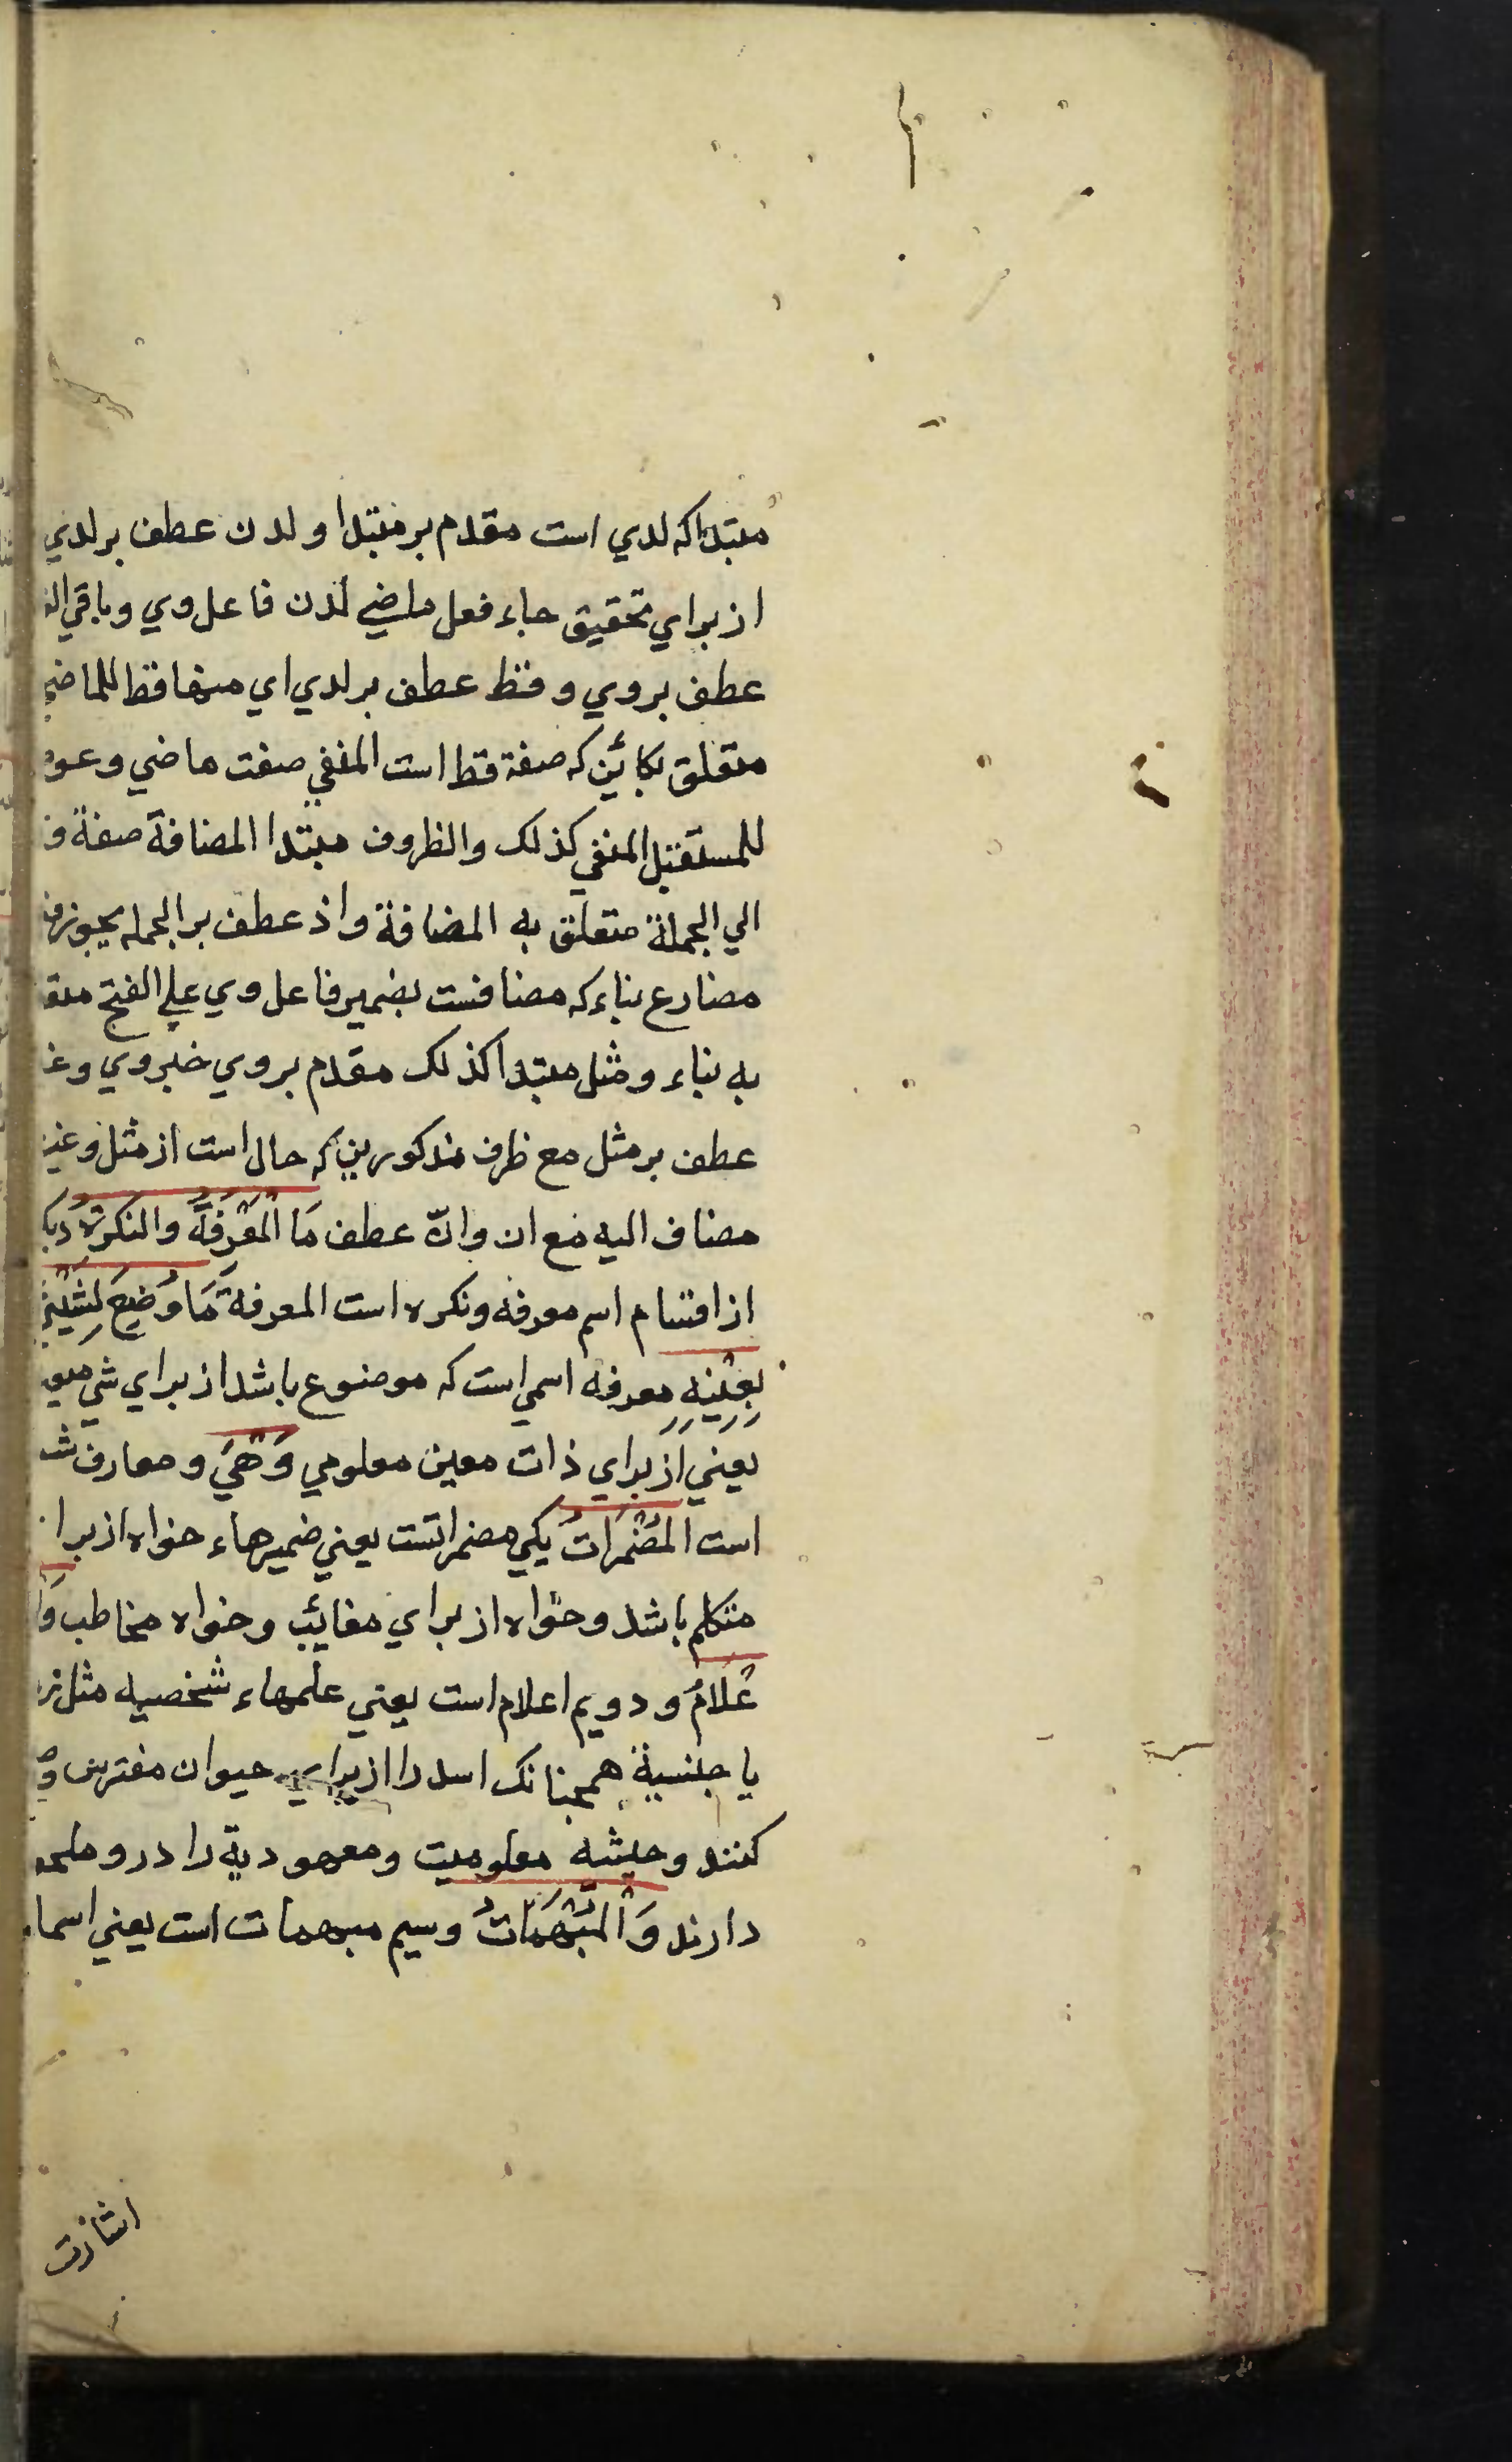 مبتدا که لدي است مقدم بر مبتدا و لدن عطف بر لدي
از براي تحقيق جاء فعل ماضي لدن فاعل وي و باقي
عطف بر وي و قط عطف بر لدي اي منها قط للماضي
متعلق بكائن كه صفة قط است المنفي صفت ماضي و عو
للمستقبل المنفي كذلك والظروف مبتدا المضافة صفة و
الي الجملة متعلق به المضافة و اذ عطف بر الجمله يجوز
مضارع بناء كه مضافست بضمير فاعل وي علي الفتح متعـ
به بناء و مثل مبتدا كذلك مقدم بر وي خبر وي و غـ
عطف بر مثل مع ظرف مذكورين كه حال است از مثل و غير
مضاف اليه مع ان و انّ عطف مَا الْمَعْرِفَةُ والنكرة ديكـ
از اقسام اسم معرفه و نكره است المعرفة مَا وُضِعَ لِشَيْءٍ
بِعَيْنِهِ معرفه اسمي است كه موضوع باشد از براي شي معين
يعني از براي ذات معين معلومي وَهِيَ و معارف شـ
است المُضْمَرَاتُ يكي مضمراتست يعني ضميرهاء خواه از برا
متكلم باشد و خواه از براي مغايب و خواه مخاطب وَا
عْلَامُ و دويم اعلام است يعني علمهاء شخصيه مثل
يا جنسية همچنانك اسد را از براي حيوان مفترس و
كنند و حيثيه معلوميت و معهودية را در و ملحو
دارند وَالْمُبْهَمَاتُ و سيم مبهمات است يعني اسماء
اشارت